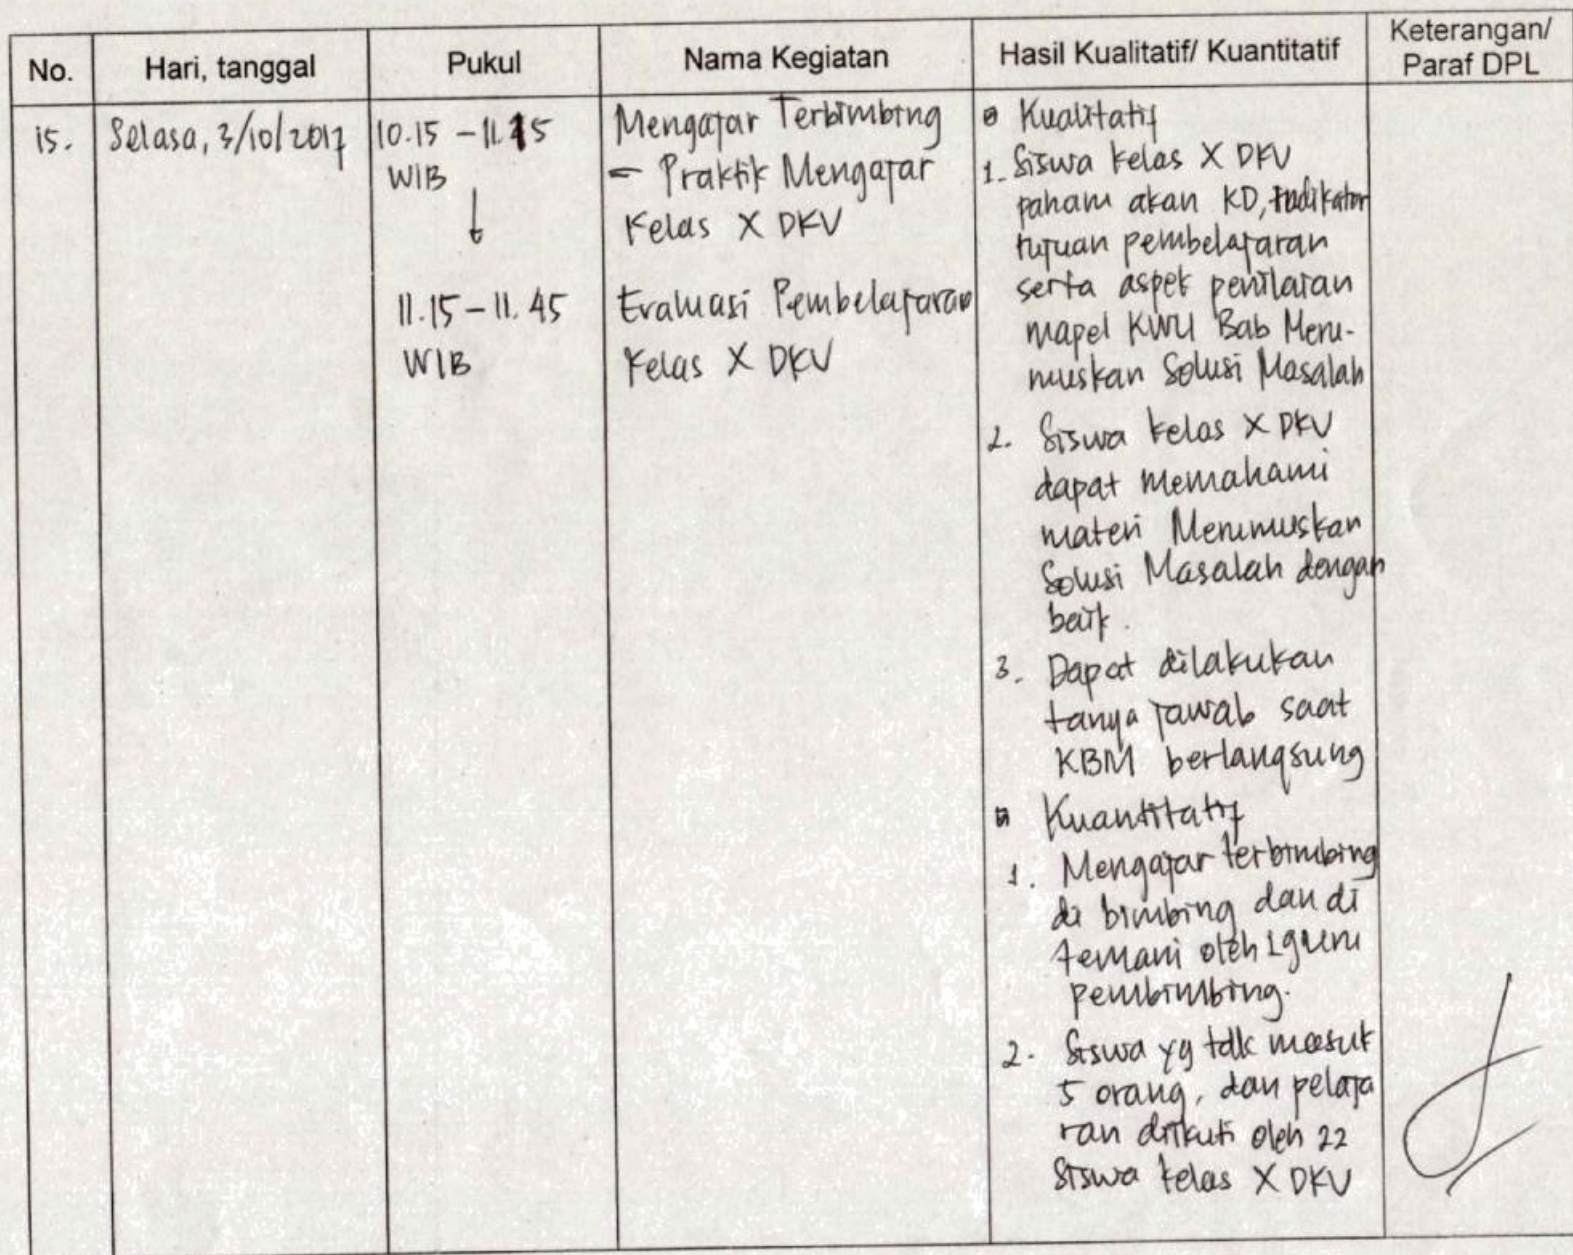 No.
Hari, tanggal
Pukul
Nama Kegiatan
Hasil Kualitatif/ Kuantitatif
Keterangan/
Paraf DPL
15.
Selasa, 3/10/2017
10.15 - 11.15
WIB
11.15 - 11.45
WIB
Mengajar Terbimbing
- Praktik Mengajar
Kelas X DKV
Evaluasi Pembelajaran
Kelas X DKV
Kualitatif
1. Siswa kelas X DKV
paham akan KD, indikator
tujuan pembelajaran
serta aspek penilaian
mapel KWU Bab Meru-
muskan Solusi Masalah
2. Siswa kelas X DKV
dapat memahami
materi Merumuskan
Solusi Masalah dengan
baik.
3. Dapat dilakukan
tanya jawab saat
KBM berlangsung
Kuantitatif
1. Mengajar terbimbing
di bimbing dan di
temani oleh 1 guru
pembimbing.
2. Siswa yg tdk masuk
5 orang, dan pelaja
ran diikuti oleh 22
Siswa kelas X DKV